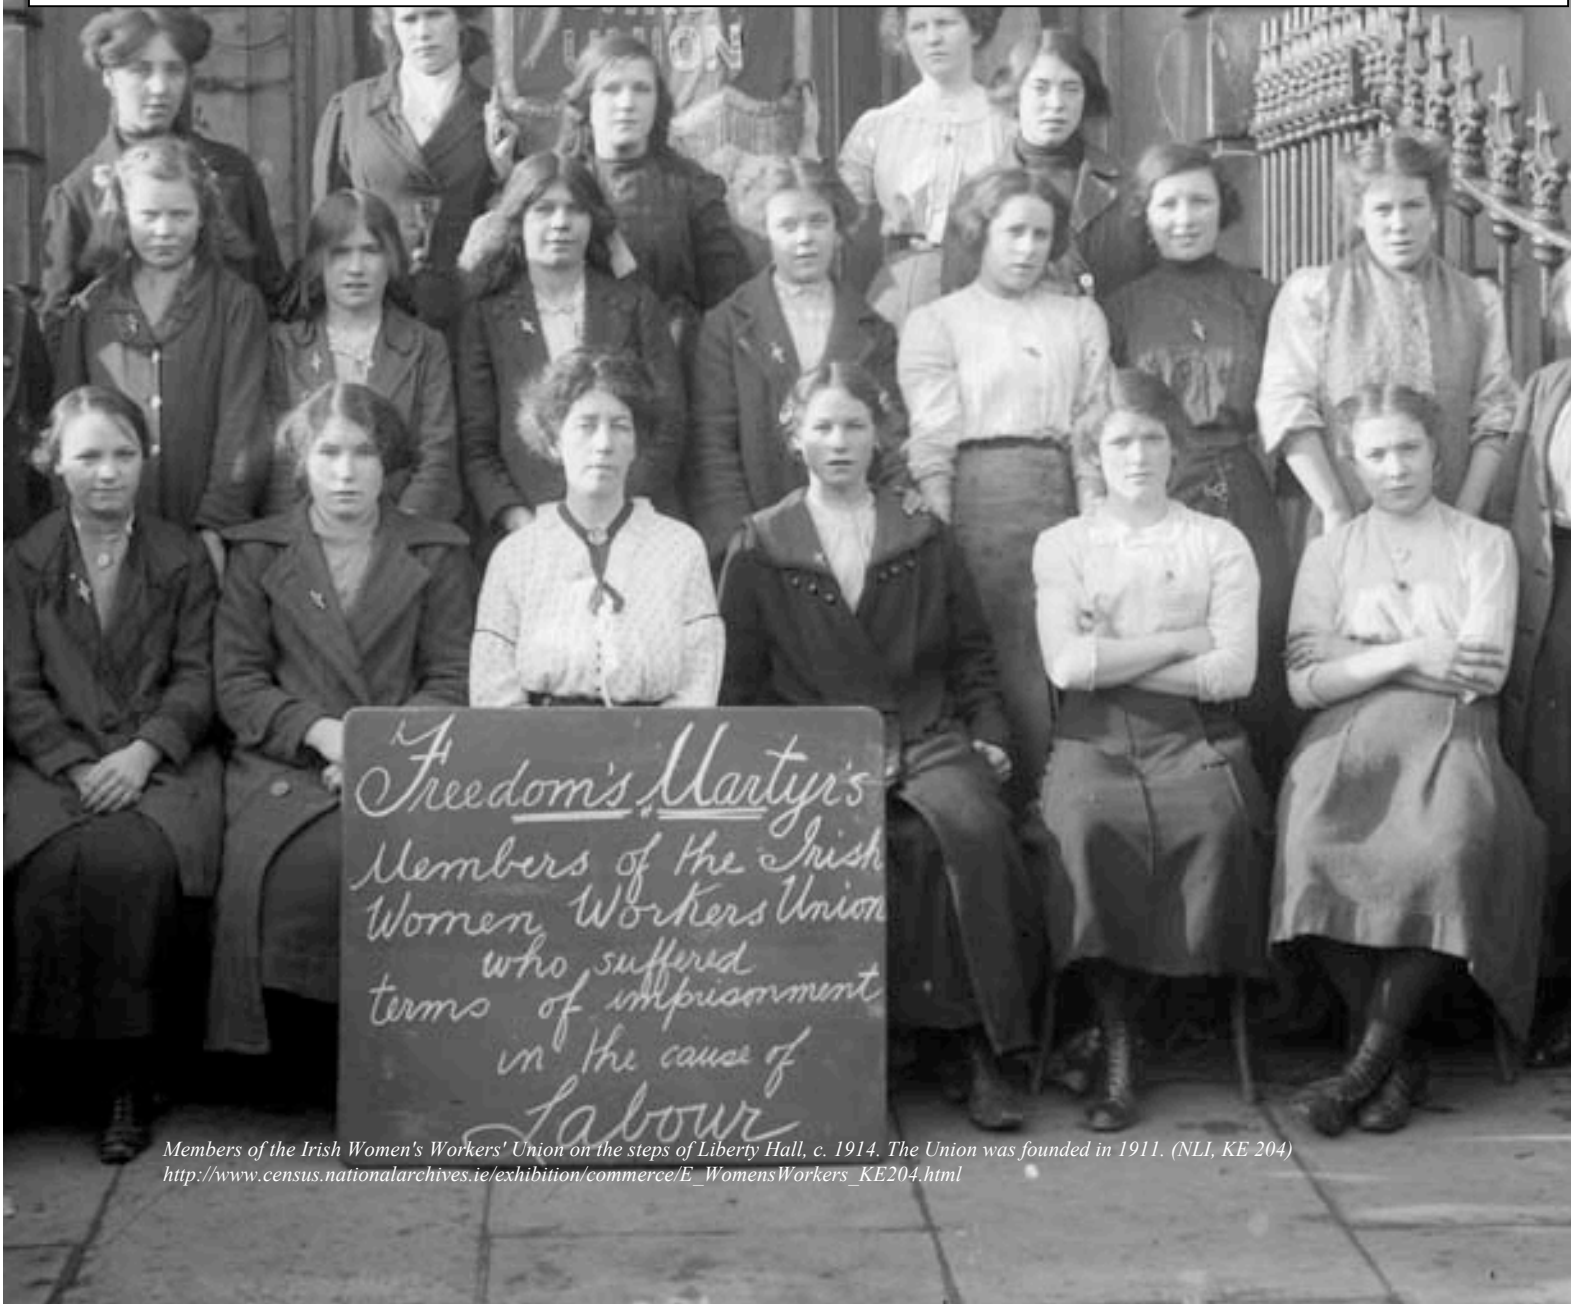 UNION
Freedom's Martyr's
Members of the Irish
Women Workers Union
who suffered
terms of imprisonment
in the cause of
Labour
Members of the Irish Women's Workers' Union on the steps of Liberty Hall, c. 1914. The Union was founded in 1911. (NLI, KE 204)
http://www.census.nationalarchives.ie/exhibition/commerce/E_WomensWorkers_KE204.html